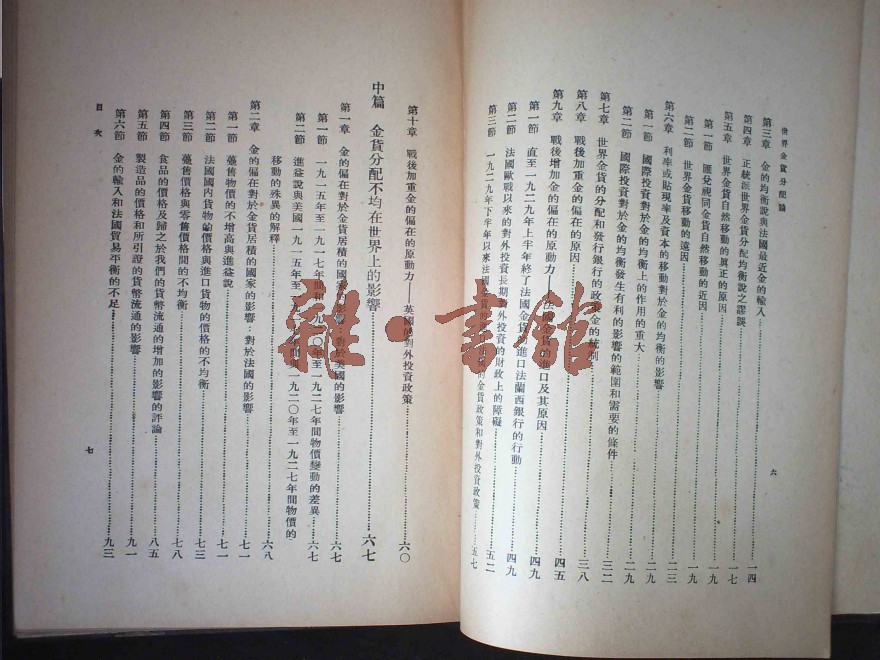 世界金貨分配論
第三章 金的均衡說與法國最近金的輸入…………一四
第四章 正統派世界金貨分配均衡說之謬誤…………一七
第五章 世界金貨自然移動的眞正的原因…………一九
第一節 匯兌視同金貨自然移動的近因…………一九
第二節 世界金貨移動的遠因…………二三
第六章 利率或貼現率及資本的移動對於金的均衡的影響…………二九
第一節 國際投資對於金的均衡上的作用的重大…………二九
第二節 國際投資對於金的均衡發生有利的影響的範圍和需要的條件…………三二
第七章 世界金貨的分配和發行銀行的政策金的統制…………三八
第八章 戰後加重金的偏在的原因…………四五
第九章 戰後增加金的偏在的原動力——法國金貨的進口及其原因…………四九
第一節 直至一九二九年上半年終了法國金貨的進口法蘭西銀行的行動…………四九
第二節 法國歐戰以來的對外投資長期對外投資的財政上的障礙…………五二
第三節 一九二九年下半年以來法國金貨的金貨政策和對外投資政策…………五七
六
第十章 戰後加重金的偏在的原動力——英國的對外投資政策…………六〇
中篇 金貨分配不均在世界上的影響…………六七
第一章 金的偏在對於金貨居積的國家的影響：對於美國的影響…………六七
第一節 一九一五年至一九一七年間和一九二〇年至一九二七年間物價變動的差異…………六七
第二節 進益說與美國一九一五年至一九二〇年間與一九二〇年至一九二七年間物價的
移動的殊異的解釋…………六八
第二章 金的偏在對於金貨居積的國家的影響：對於法國的影響…………七一
第一節 躉售物價的不增高與進益說…………七一
第二節 法國國內貨物的價格與進口貨物的價格的不均衡…………七三
第三節 躉售價格與零售價格間的不均衡…………七八
第四節 食品的價格及歸之於我們的貨幣流通的增加的影響的評論…………八五
第五節 製造品的價格和所引證的貨幣流通的影響…………九一
第六節 金的輸入和法國貿易平衡的不足…………九三
目次
七
雜·書館